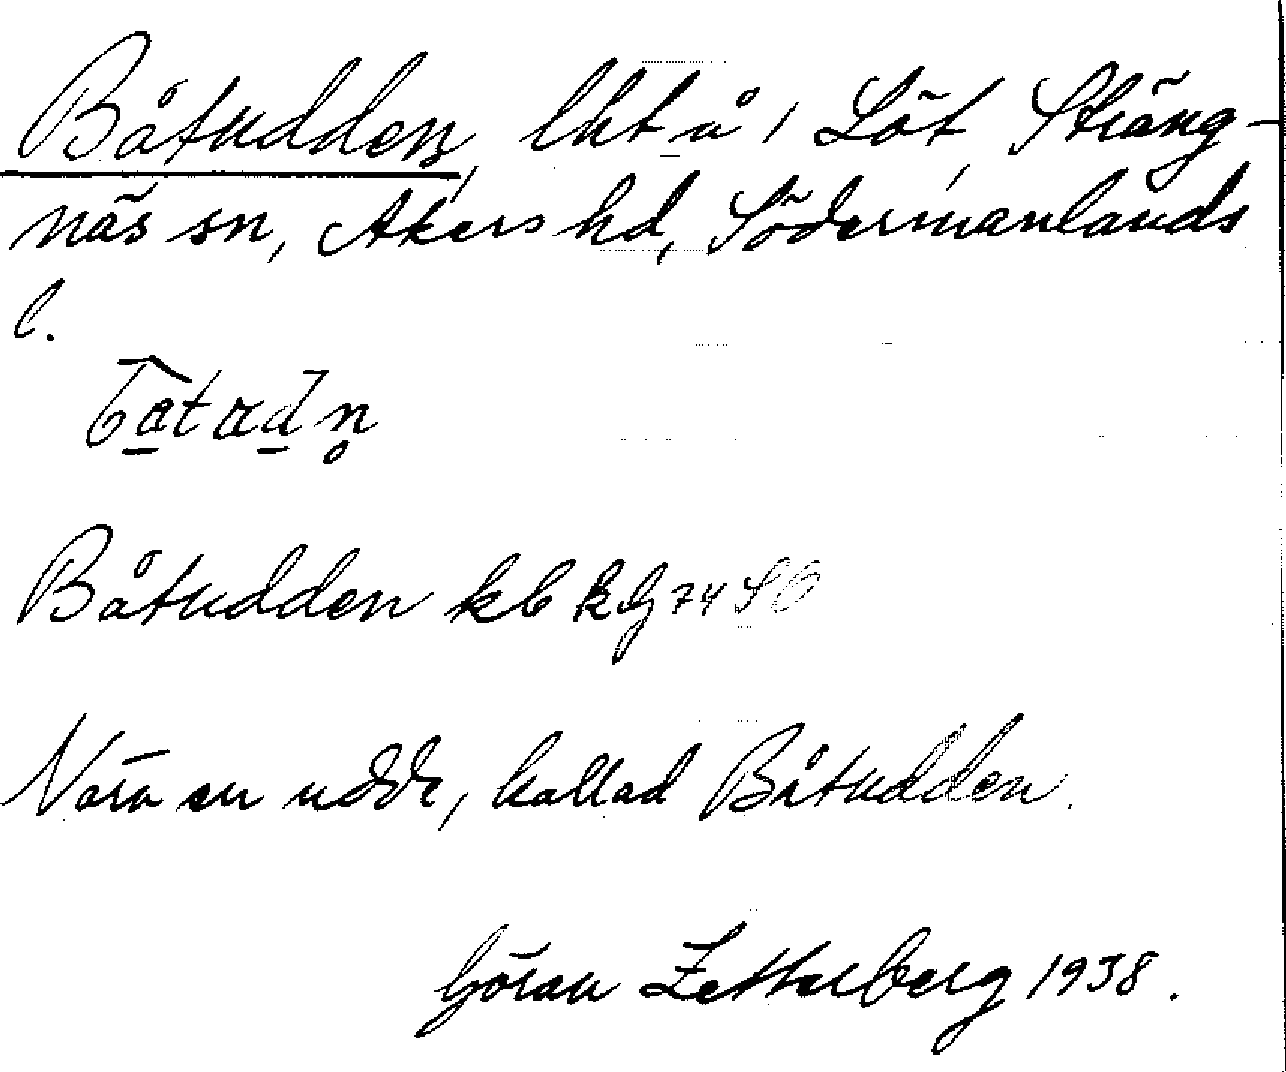 Båtudden, lht å 1 Löt, Sträng-
näs sn, Åkers hd, Södermanlands
l.
Båtudden kb kbg 74 SO
Nära en udde, kallad Båtudden.
Göran Zetterberg 1938.